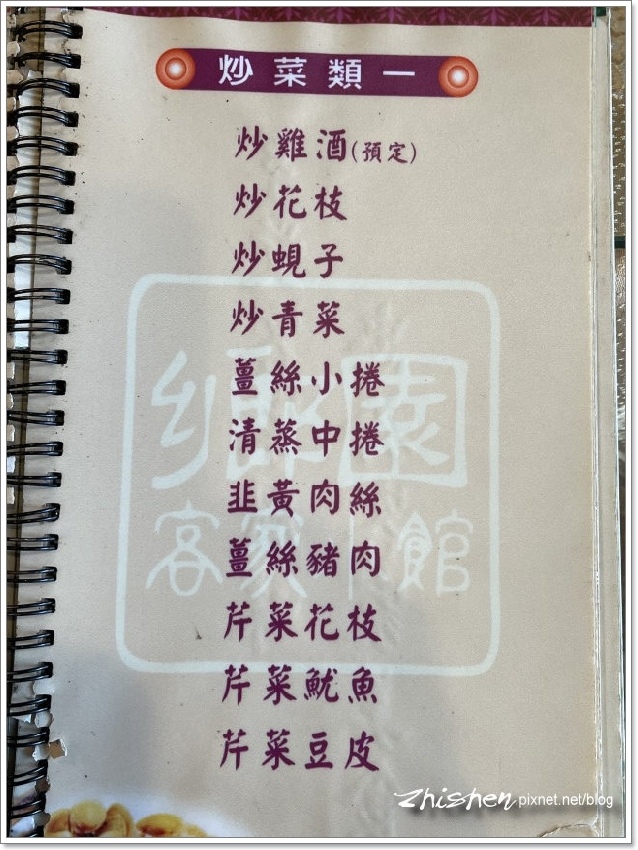 炒菜類一
炒雞酒(預定)
炒花枝
炒蜆子
炒青菜
薑絲小捲
清蒸中捲
韭黃肉絲
薑絲豬肉
芹菜花枝
芹菜魷魚
芹菜豆皮
鄉園
客家小館
zhishen pixnet.net/blog